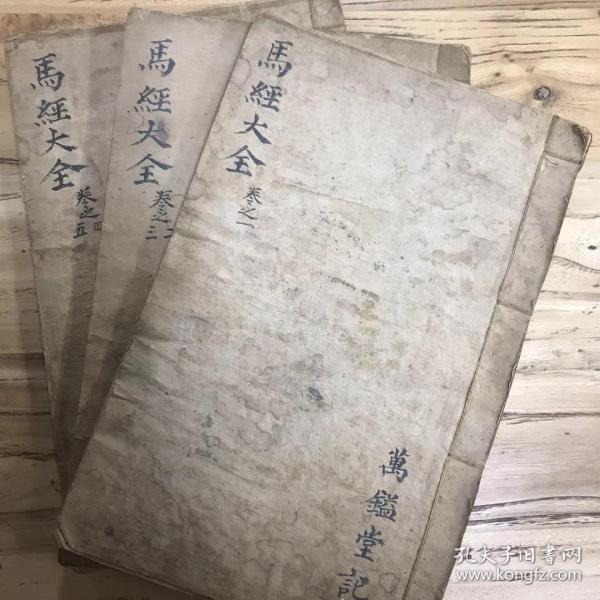 馬經大全
卷之一
萬鎰堂記
馬經大全
卷之二
三
馬經大全
卷之四
五
孔夫子旧书网
www.kongfz.com